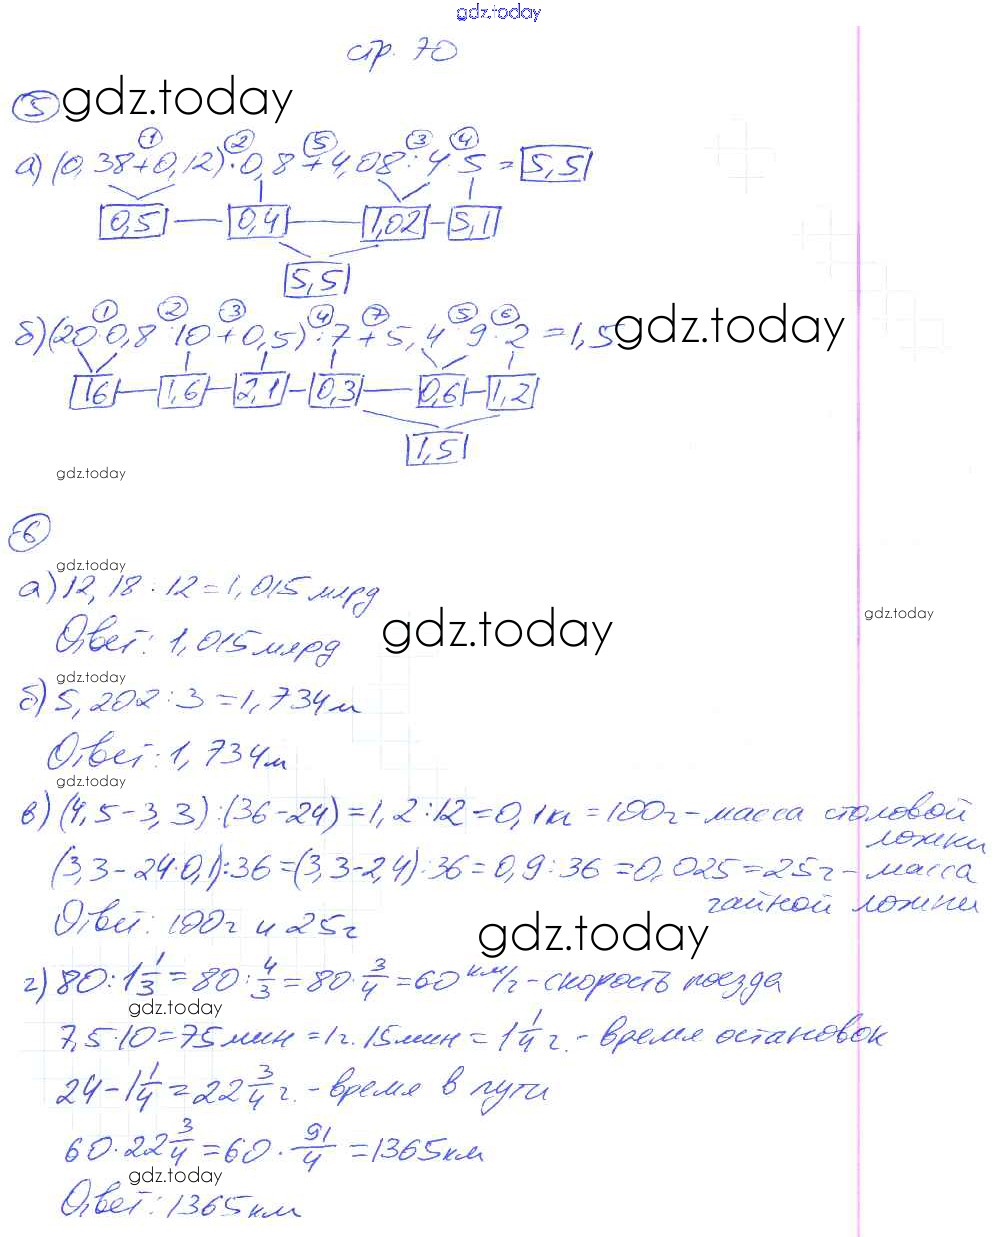 gdz.today
стр. 70
5 gdz.today
1 2 5 3 4
а) (0,38+0,12)·0,8+4,08:4·5=5,5
0,5 0,4 1,02 5,1
5,5
1 2 3 4 7 5 6
б) (20·0,8:10+0,5):7+5,4:9·2=1,5 gdz.today
16 1,6 2,1 0,3 0,6 1,2
1,5
gdz.today
6
gdz.today
а) 12,18:12=1,015 млрд
gdz.today
gdz.today
Ответ: 1,015 млрд
gdz.today
б) 5,202:3=1,734м
Ответ: 1,734м
gdz.today
в) (4,5-3,3):(36-24)=1,2:12=0,1кг=100г-масса столовой
ложки
(3,3-24·0,1):36=(3,3-2,4):36=0,9:36=0,025=25г-масса
чайной ложки
Ответ: 100г и 25г
gdz.today
г) 80:1 1/3=80:4/3=80·3/4=60 км/ч-скорость поезда
gdz.today
7,5·10=75мин=1ч.15мин=1 1/4 ч.-время остановок
24-1 1/4=22 3/4 ч.-время в пути
60·22 3/4=60·91/4=1365км
gdz.today
Ответ: 1365км